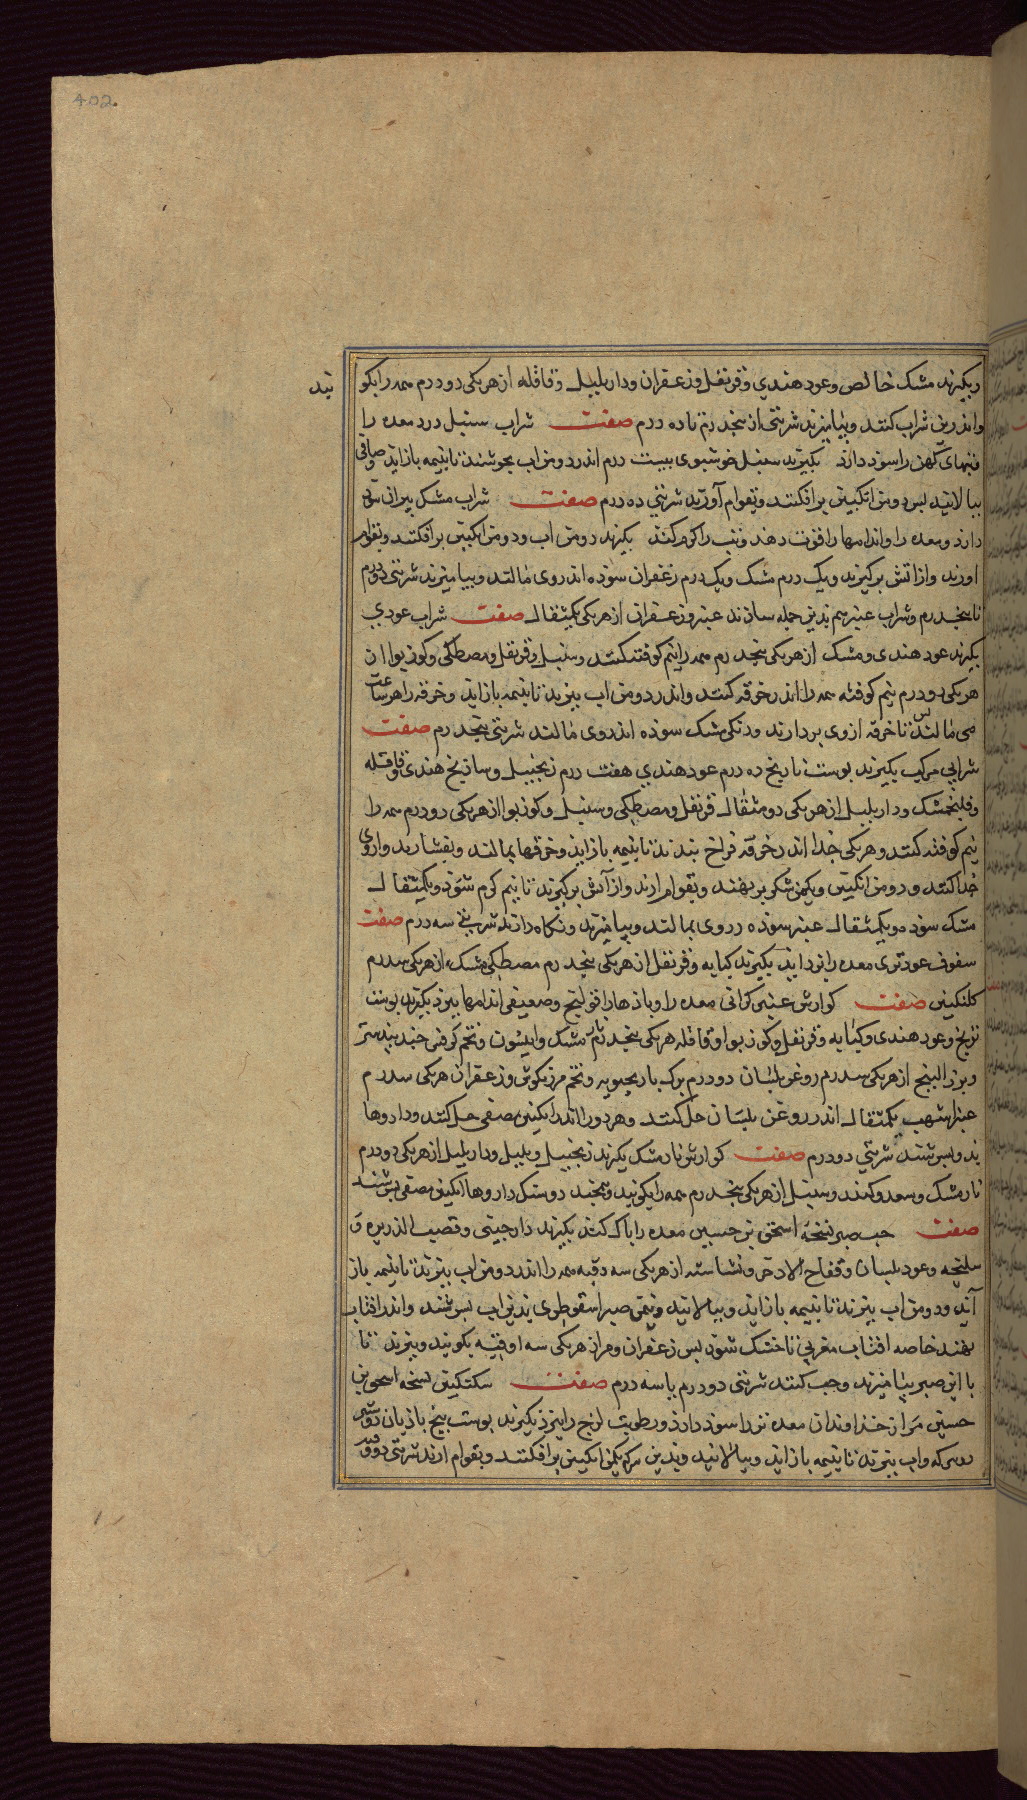 402
و بکیرند مشک خالص وعود هندی وقرنفل وزعفران ودار بلبل وقاقله از هریکی دو درم همه را بکو
بند
واندرین شراب کنند وبیامیزند شربتی از پنجدرم تا ده درم صفت شراب سنبل درد معده را
وتبهای کهن را سوذ دارذ بکیرند سنبل خوشبوی بیست درم اندر دو من اب بجوشند تا بنیمه بازاید وصافی
ببالایند بس دو من انکبین برافکنند وبقوام آورند شربتی ده درم صفت شراب مشک بیران سوذ
دارذ ومعده را واندامها را قوت دهذ وتب را کرم کند بکیرند دو من اب ودو من انکبین برافکنند وبقوام
اورند واز اتش برکیرند ویک درم مشک ویک درم زعفران سوذه اندروی مالند وبیامیزند شربتی دو درم
تا پنجدرم وشراب عنبر هم بدین جمله سازند عنبر وزعفران از هریکی یکمثقال صفت شراب عودی
بکیرند عود هندی ومشک از هریکی پنجدرم همه را نیم کوفته کنند وسنبل وقرنفل ومصطکی وکوزبوا از
هریکی دو درم نیم کوفته همه را اندر خرقه کنند واندر دو من اب ببزند تا بنیمه بازاید وخرقه را هر ساعت
می مالند بس تا خرقه ازوی بردارند ودنکی مشک سوذه اندروی مالند شربتی پنجدرم صفت
شرابی مرکب بکیرند بوست تارنج ده درم عود هندی هفت درم زنجبیل وساذنج هندی وقاقله
وفلنجمشک ودار بلبل از هریکی دو مثقال قرنفل ومصطکی وسنبل وکوزبوا از هریکی دو درم همه را
نیم کوفته کنند وهریکی جذا اندر خرقه فراخ بندند تا بنیمه بازاید وخرقها بمالند وبفشارند وازوی
جذا کنند ودو من انکبین ویکمن شکر برنهند وبقوام ارند واز آتش برکیرند تا نیم کرم شوذ ویکمثقال
مشک سوذه ویکمثقال عنبر سوذه دروی بمالند وبیامیزند ونکاه دارند شربتی سه درم صفت
سفوف عود تری معده را بزداید بکیرند کبابه وقرنفل از هریکی پنجدرم مصطکی مشک از هریکی سدرم
کلنکبین صفت کوارش عنبر کرانی معده را وباذها را وقولنج وضعیفی اندامها ببرذ بکیرند بوست
ترنج وعود هندی وکبابه وقرنفل وکوزبوا وقاقله هریکی پنجدرم مشک وانیسون وتخم کرفس جندبیدستر
وبزر البنج از هریکی سدرم روغن بلسان دو درم برک باذرنجبویه وتخم مرزنکوش وزعفران هریکی سدرم
عنبر اشهب یکمثقال اندر روغن بلسان حل کنند وهر دو را اندر انکبین مصفی حل کنند وداروها
بذو بسرشند شربتی دو درم صفت کوارش نارمشک بکیرند زنجبیل وبلبل ودار بلبل از هریکی دو درم
نارمشک وسعد وکندر وسنبل از هریکی پنجدرم همه را بکوبند وببیزند دوسنک داروها انکبین مصفی بسرشند
صفت حب صبر نسخه اسحق بن حسین معده را باک کند بکیرند دارچینی وقصب الذریره و
سلیخه وعود بلسان وفقاح الاذخر ونشاسته از هریکی سه وقیه همه را اندر دو من اب ببزند تا بنیمه باز
آید ودو من اب ببزند تا بنیمه بازاید وببالایند ونیمن صبر اسقوطری بذین اب بسرشند واندر افتاب
بنهند خاصه افتاب مغربی تا خشک شوذ بس زعفران ومر از هریکی سه اوقیه بکوبند وببزند تا
با این صبر بیامیزند وحب کنند شربتی دو درم یا سه درم صفت سکنکبین نسخه اسحق بن
حسین مر از خذاوندان معده تر را سوذ دارذ ورطوبت لزج را ببرذ بکیرند بوست بیخ باذیان دو سیر
در سرکه واب ببزند تا بنیمه بازاید وببالایند وبدین سرکه یکمن انکبین برافکنند وبقوام ارند شربتی دو وقیه